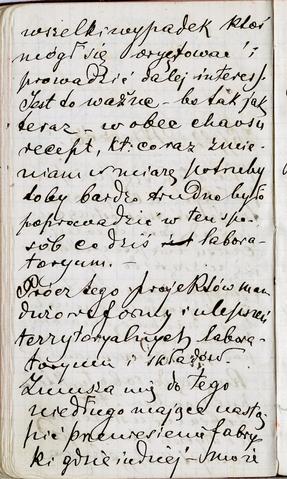 wszelki wypadek ktoś
mógł się oryetować i
prowadzić dalej interes.
Jest to ważne – bo tak jak
teraz – wobec chaosu
recept, kt: coraz zmie-
niam w miarę potrzeby
toby bardzo trudno było
poprowadzić w ten spo-
sób co dziś labora-
toryum. –
Prócz tego projektów mam
dużo reformy i ulepszeń
terrytoryalnych labora-
toryum i składów.
Zmusza mię do tego
niedługo mające nastą-
pić przeniesienie fabry-
ki gdzie indziej – może